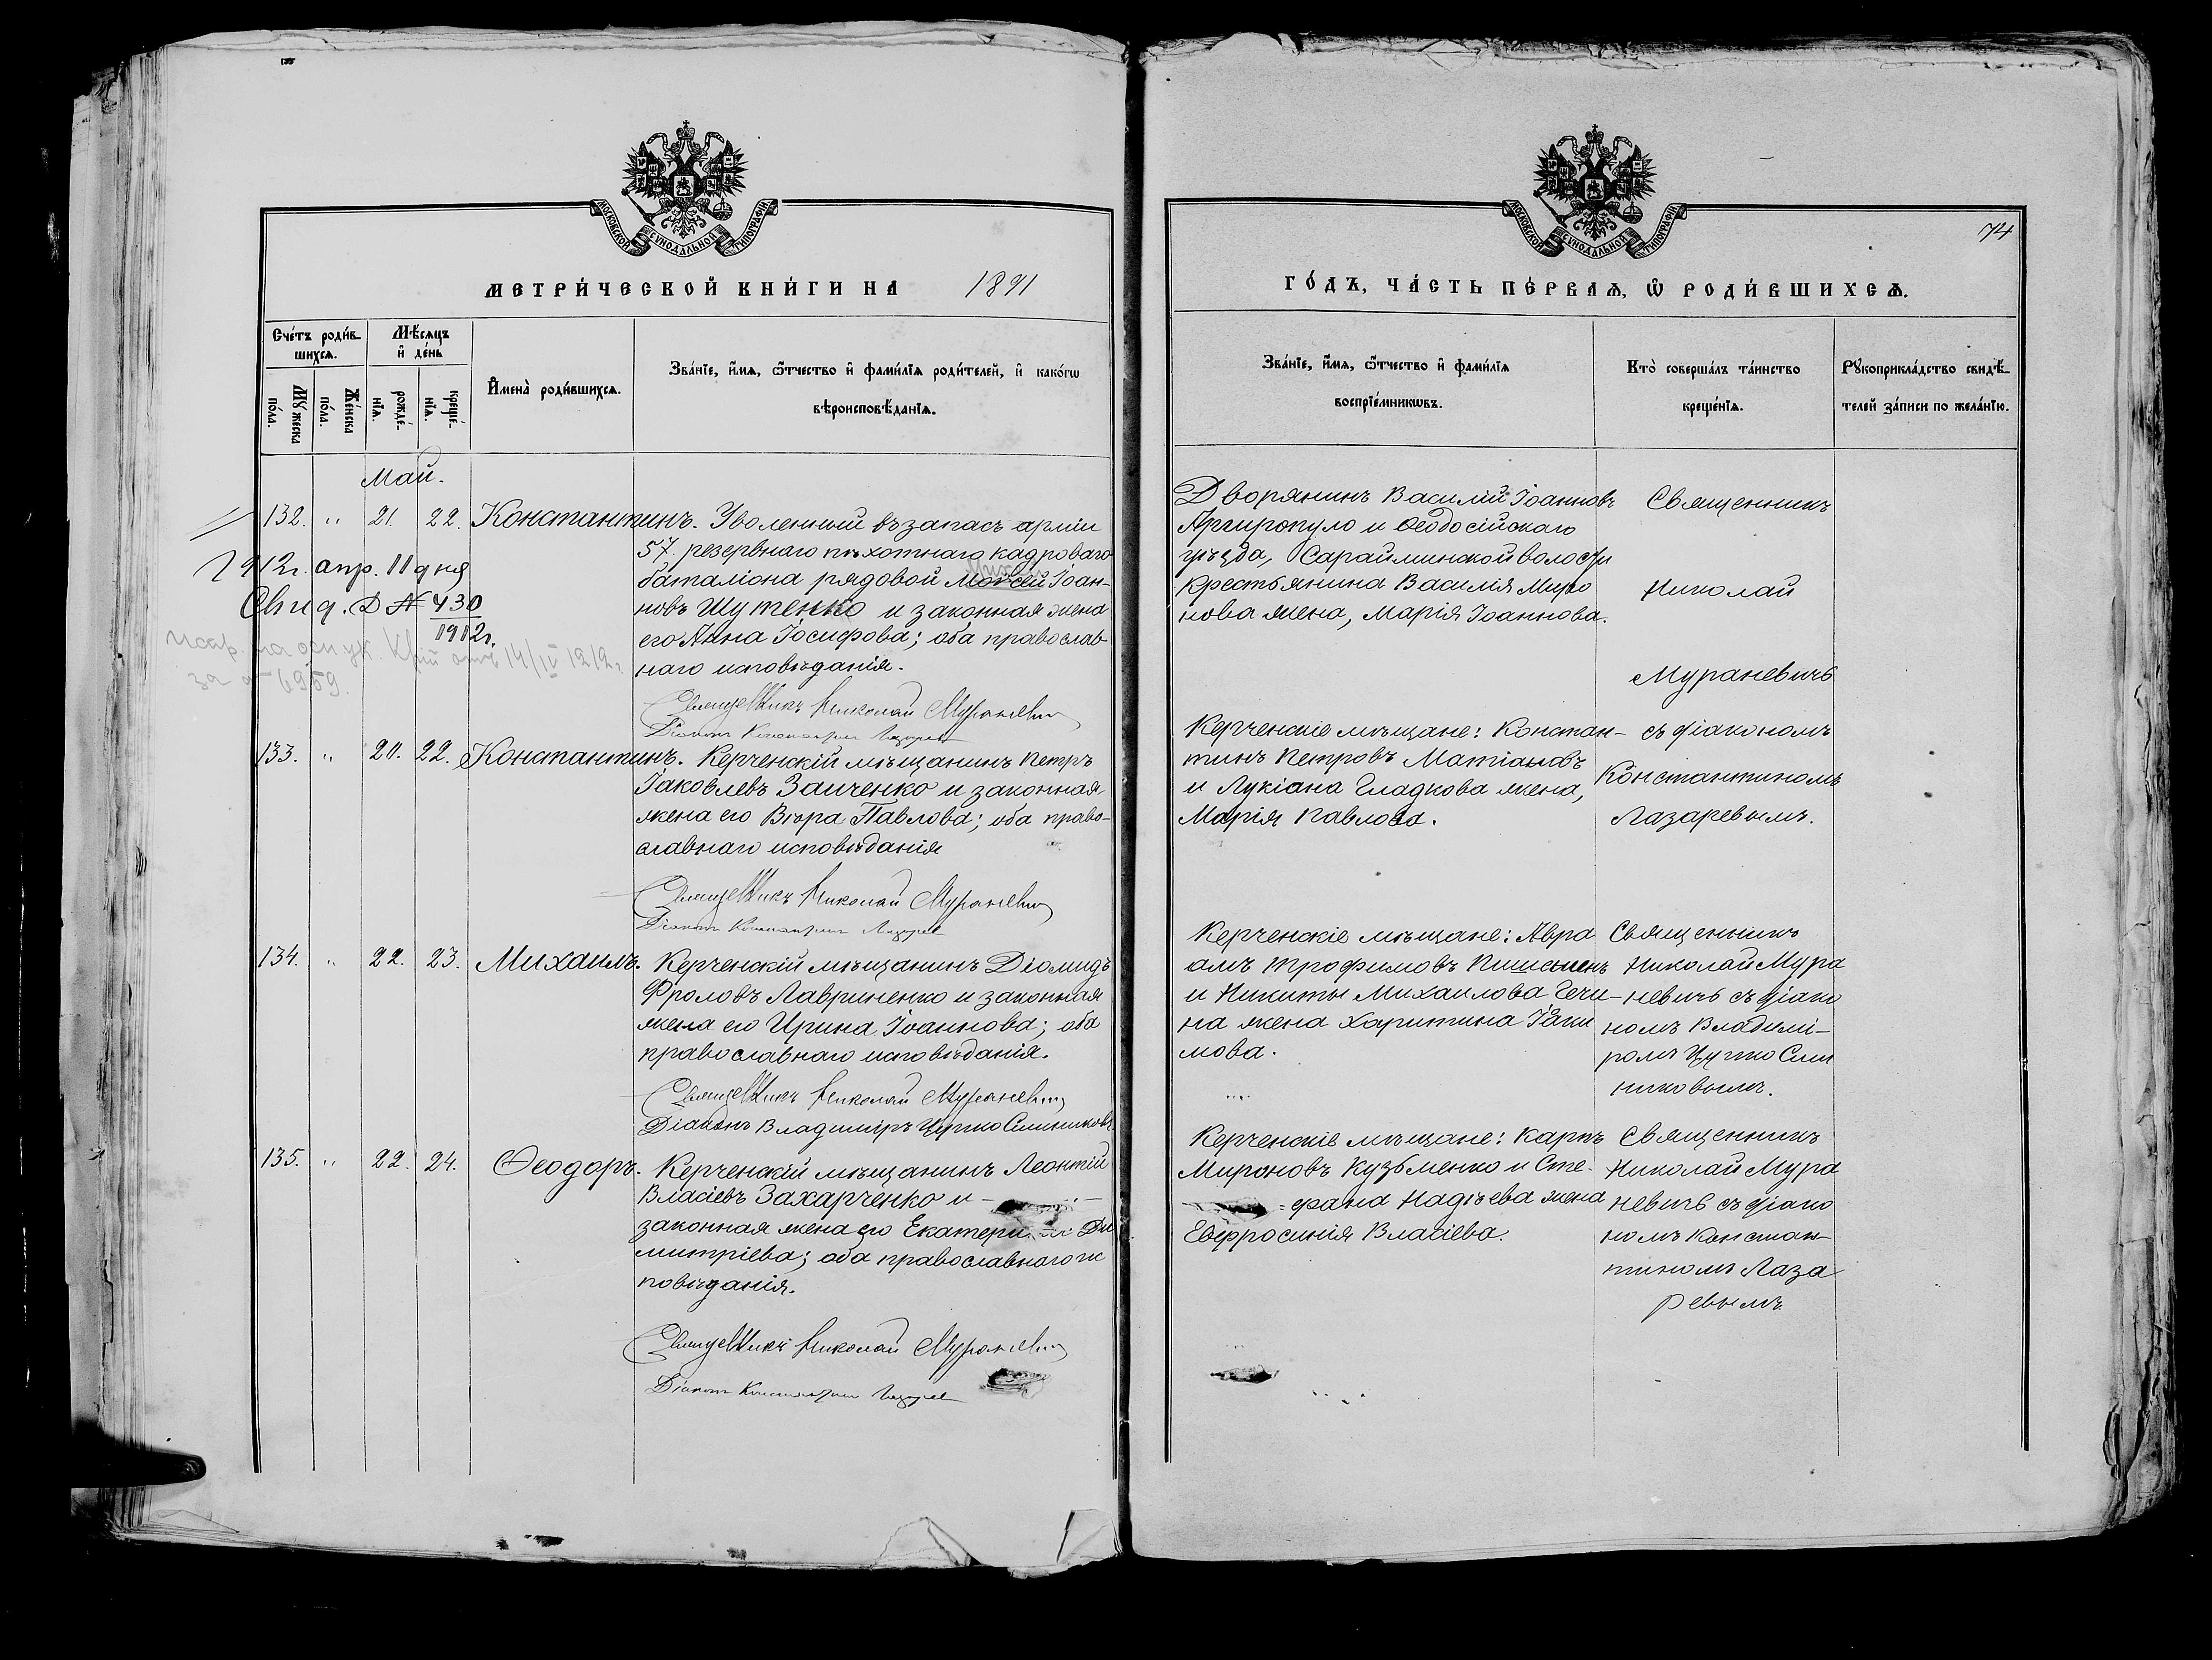 МОСКОВСКОЙ СѴНОДАЛЬНОЙ ТИПОГРАФІИ
МЕТРИ́ЧЕСКОЙ КНИ́ГИ НА 1891
Сче́тъ роди́в-
шихсѧ.
Мѣ́сѧцъ
и҆ де́нь
Мꙋ́жеска
по́ла.
Же́нска
по́ла.
рожде́-
нїѧ.
креще́-
нїѧ.
И҆мена̀ роди́вшихсѧ.
Зва́нїе, и҆́мѧ, ѻ҆́тчество и҆ фами́лїѧ роди́телей, и҆ како́гѡ
вѣроисповѣ́данїѧ.
Май.
132. " 21. 22. Константинъ. Уволенный въ запасъ арміи
57. резервнаго пѣхотнаго кадроваго
баталіона рядовой Моисей Іоан-
новъ Шутенко и законная жена
его Анна Іосифова; оба православ-
наго исповѣданія.
1912г. апр. 11 дня
Свид. Д № 430
1912г.
за № 6959.
Священникъ Николай Мураневич
Діаконъ Константин Лазарев
133. " 20. 22. Константинъ. Керченскій мѣщанинъ Петръ
Іаковлевъ Заиченко и законная
жена его Вѣра Павлова; оба право-
славнаго исповѣданія
Священникъ Николай Мураневич
Діаконъ Константин Лазарев
134. " 22. 23. Михаилъ. Керченскій мѣщанинъ Діомидъ
Фроловъ Лавриненко и законная
жена его Ирина Іоаннова; оба
православнаго исповѣданія.
Священникъ Николай Мураневич
Діаконъ Владиміръ
135. " 22. 24. Ѳеодоръ. Керченскій мѣщанинъ Леонтій
Власіевъ Захарченко и -
законная жена его Екатери Ди
митріева; оба православнаго ис
повѣданія.
Священникъ Николай Мураневич
Діаконъ Константин Лазарев
74
МОСКОВСКОЙ СѴНОДАЛЬНОЙ ТИПОГРАФІИ
ГО́ДЪ, ЧА́СТЬ ПЕ́РВАѦ, Ѡ҆ РОДИ́ВШИХСѦ.
Зва́нїе, и҆́мѧ, ѻ҆́тчество и҆ фами́лїѧ
воспрїе́мникѡвъ.
Кто̀ соверша́лъ та́инство
креще́нїѧ.
Рꙋкоприкла́дство свидѣ́-
телей за́писи по жела́нїю.
Дворянинъ Василій Іоанновъ
Аргиропуло и Ѳеодосійскаго
уѣзда, Сарайминской волости
крестьянина Василія Миро
нова жена, Марія Іоаннова.
Священникъ
Николай
Мураневичъ
съ діакономъ
Константиномъ
Лазаревымъ.
Керченскіе мѣщане: Констан-
тинъ Петровъ
и Лукіана Гладкова жена,
Марія Павлова.
Керченскіе мѣщане: Авра
амъ Трофимовъ
и Никиты Михаилова Чечи-
на жена Харитина Іаки
мова.
Священникъ
Николай Мура
невичъ съ діако
номъ Владимі-
ромъ
Керченскіе мѣщане: Карпъ
Мироновъ Кузьменко и Сте-
фана Надѣева жена
Евфросинія Власіева.
Священникъ
Николай Мура
невичъ съ діако
номъ Констан-
тиномъ Лаза
ревымъ